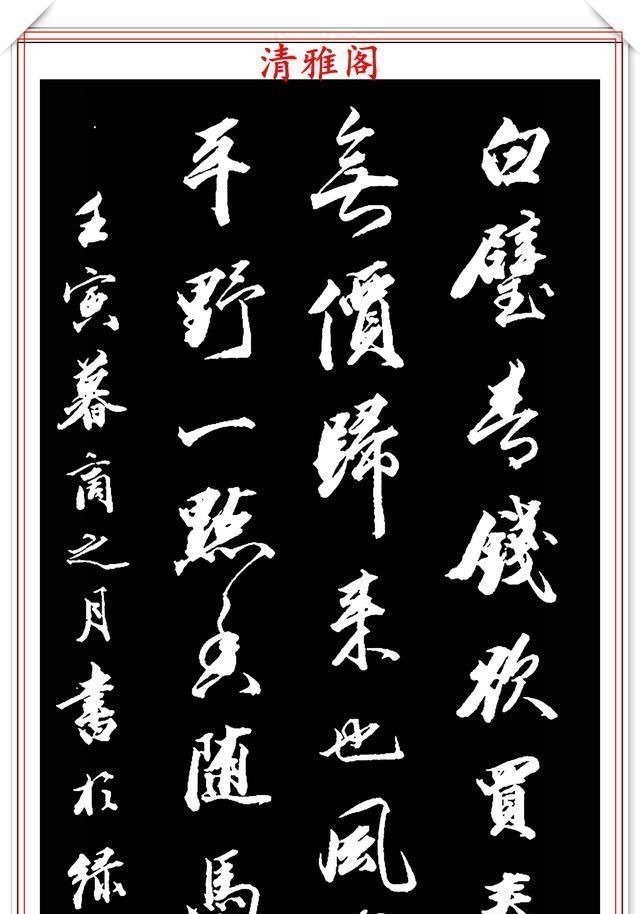 清雅阁
白璧青錢欲買春
無價歸来也風
平野一點香随馬
壬寅暮商之月書於緑